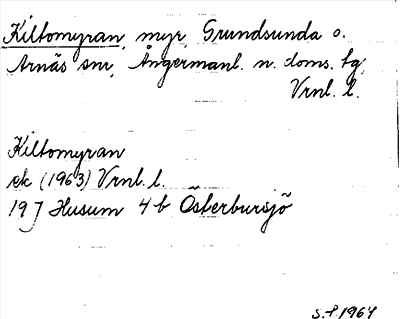 Kiltomyran, myr, Grundsunda o.
Arnäs snr, Ångermanl. n. doms. tg,
Vrnl. l.
Kiltomyran
ek (1963) Vrnl. l.
19 J Husum 4 b Österbursjö
S.f 1964